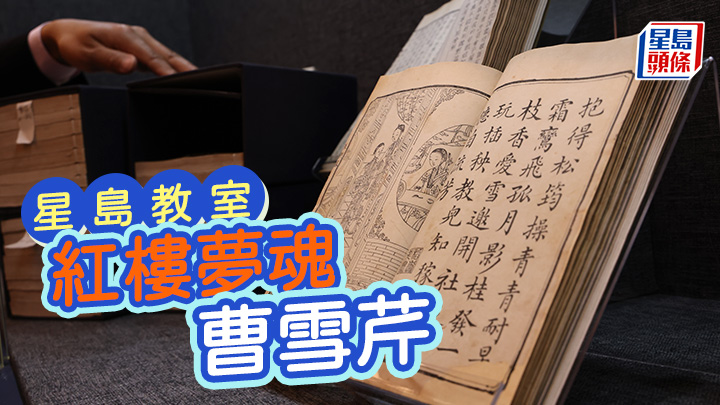 星島頭條
星島教室
紅樓夢魂
曹雪芹
抱得松筠操青青耐
霜鸞飛孤月影桂發一
枝香愛雪邀開社
玩插秧教兒知稼